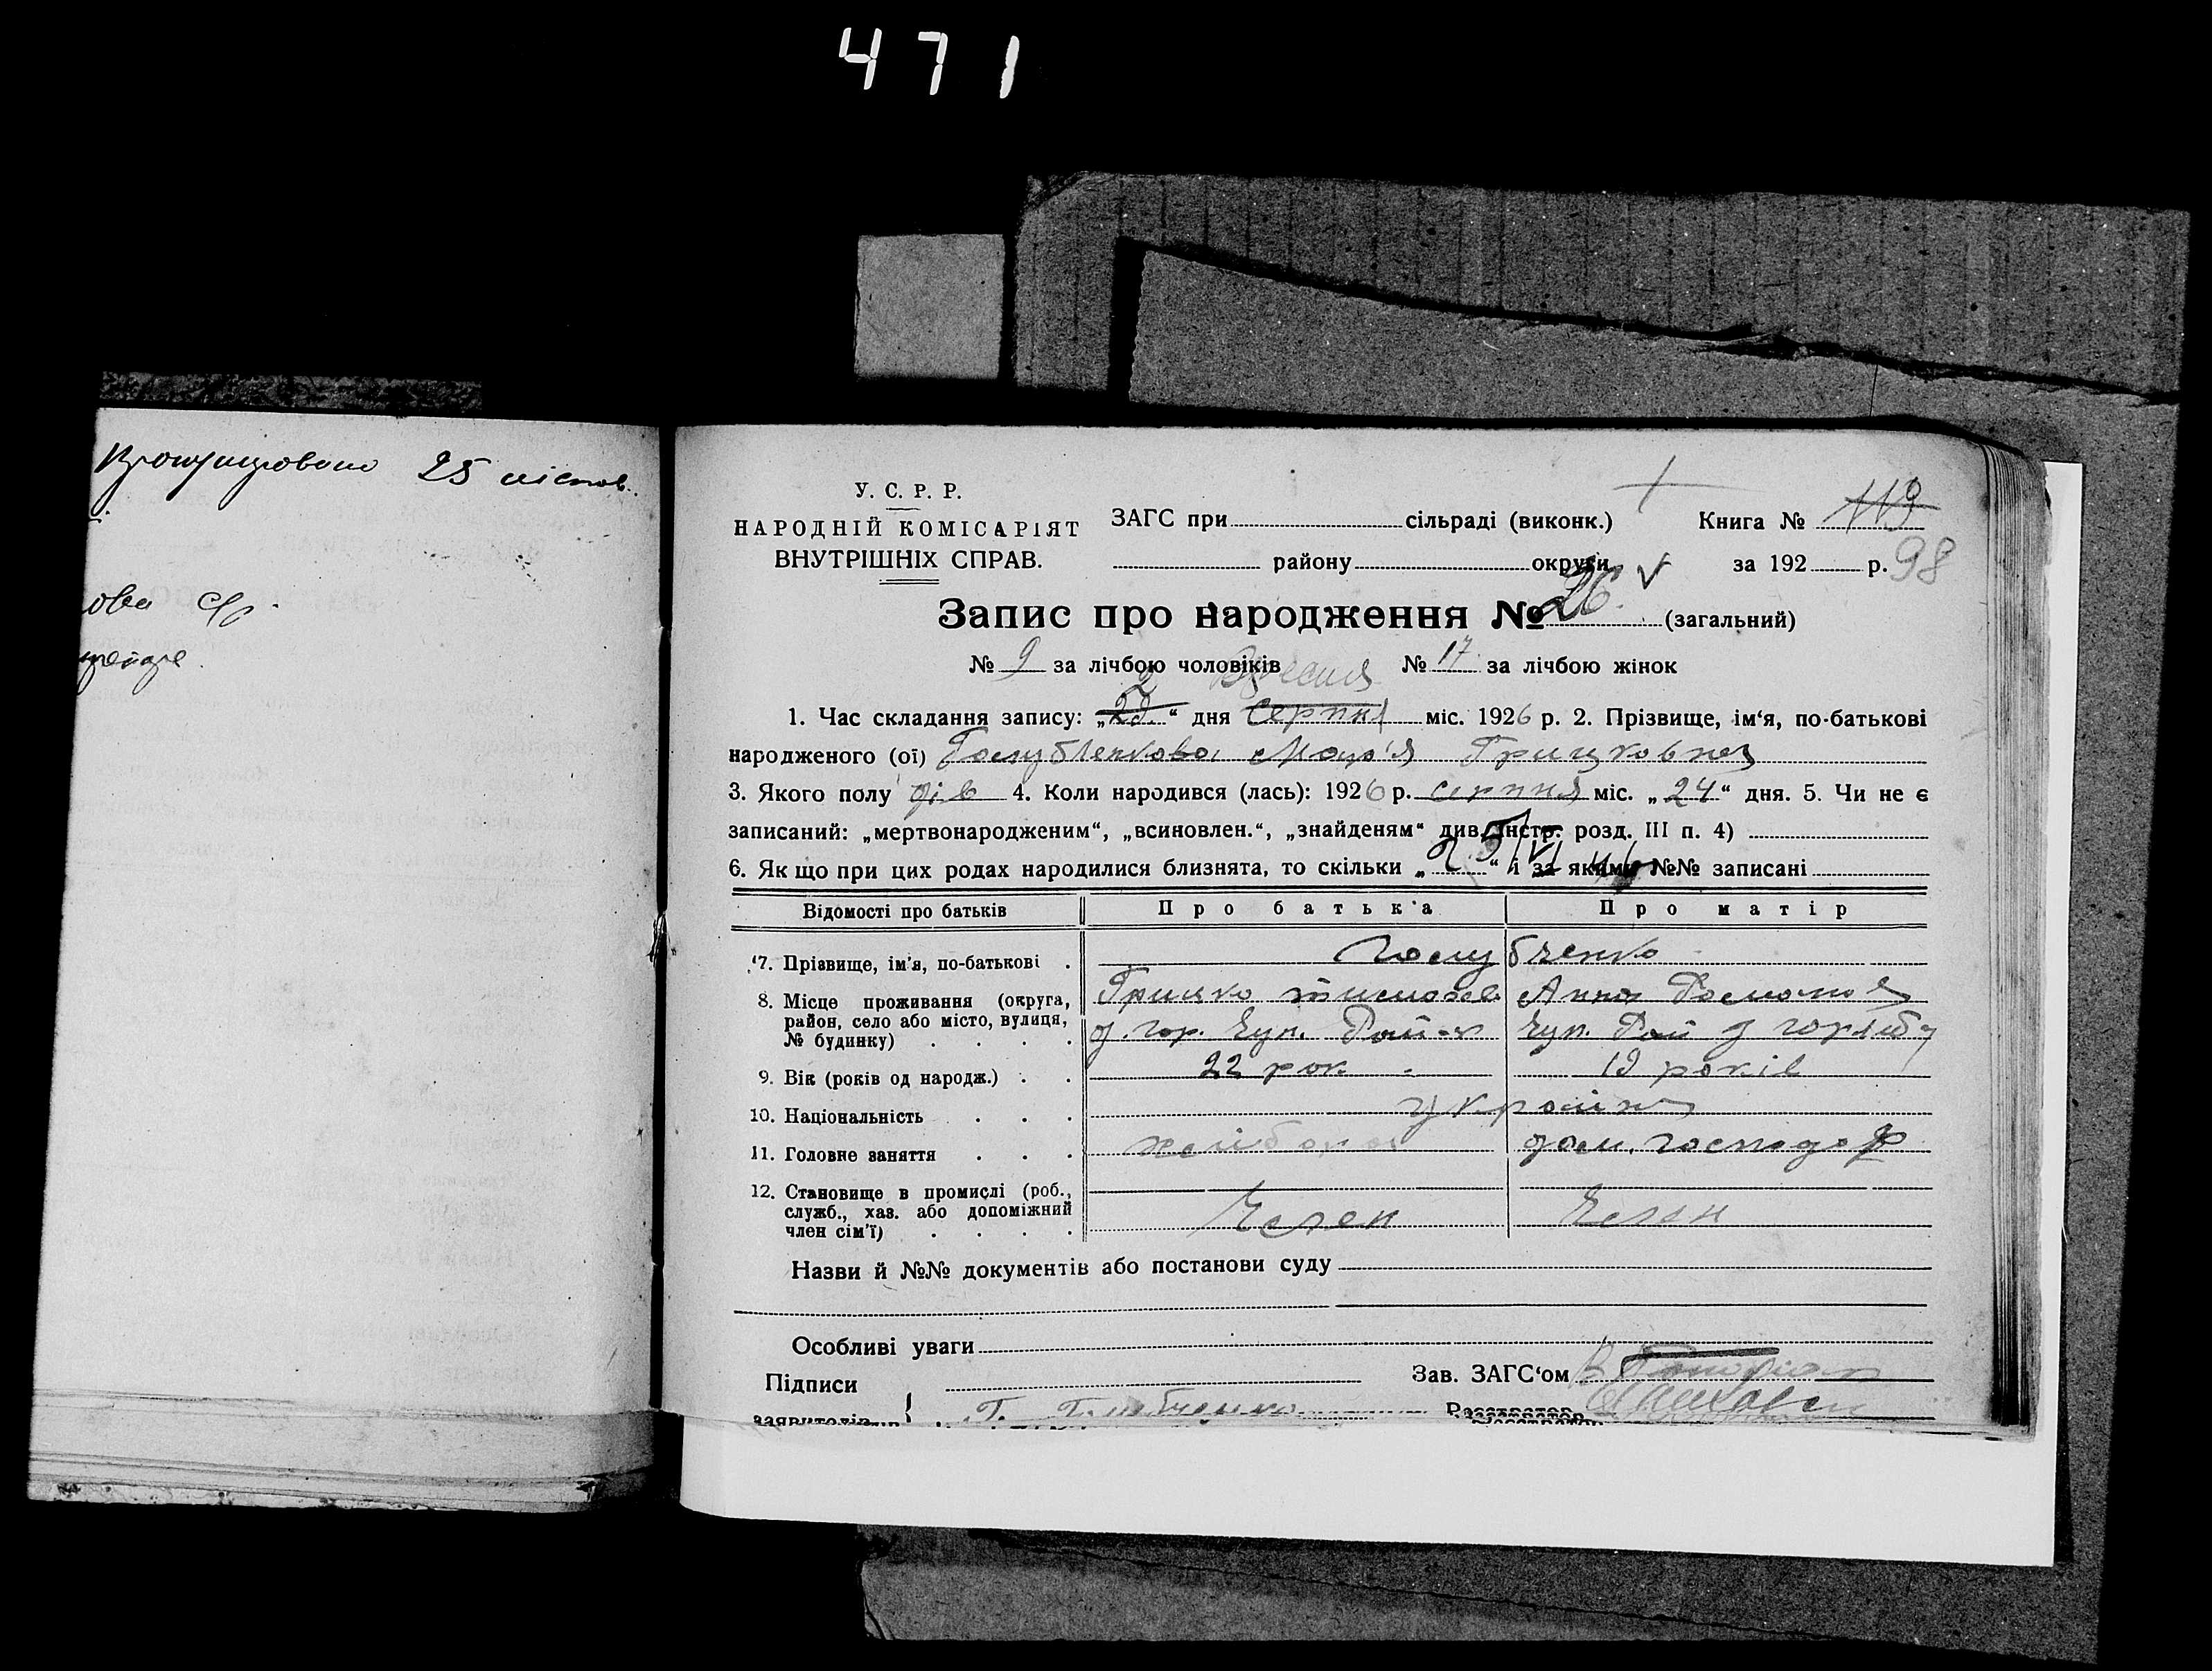 471
25 листов.
У. С. Р. Р.
НАРОДНІЙ КОМІСАРІЯТ
ВНУТРІШНІХ СПРАВ.
ЗАГС при сільраді (виконк.)
району округи
Книга № 119
за 192 р. 98
Запис про народження № 26 (загальний)
№ 9 за лічбою чоловіків № 17 за лічбою жінок
2 Вересня
1. Час складання запису: „ “ дня Серпня міс. 1926 р. 2. Прізвище, ім‘я, по-батькові
народженого (ої) Голубченкова Мар'я Грицковна
3. Якого полу дів 4. Коли народився (лась): 1926 р. серпня міс. „24“ дня. 5. Чи не є
записаний: „мертвонародженим“, „всиновлен.“, „знайденям“ див. інстр. розд. III п. 4)
6. Як що при цих родах народилися близнята, то скільки „ “ й за якими №№ записані
Відомості про батьків Про батьк‘а Про матір
7. Прізвище, ім'я, по-батькові . Голубченко
8. Місце проживання (округа, район, село або місто, вулиця, № будинку) . . . .
Грицко Анна
д. гор. Чуп. Рай Чуп. Рай д
9. Вік (років од народж.) . . 22 рок 19 років
10. Національність . . . україн
11. Головне заняття . . . дом. господар
12. Становище в промислі (роб., служб., хаз. або допоміжний член сім'ї) . . . . Член Член
Назви й №№ документів або постанови суду
Особливі уваги
Підписи Зав. ЗАГС‘ом
заявителів { Г. Голубченко Реєстратор